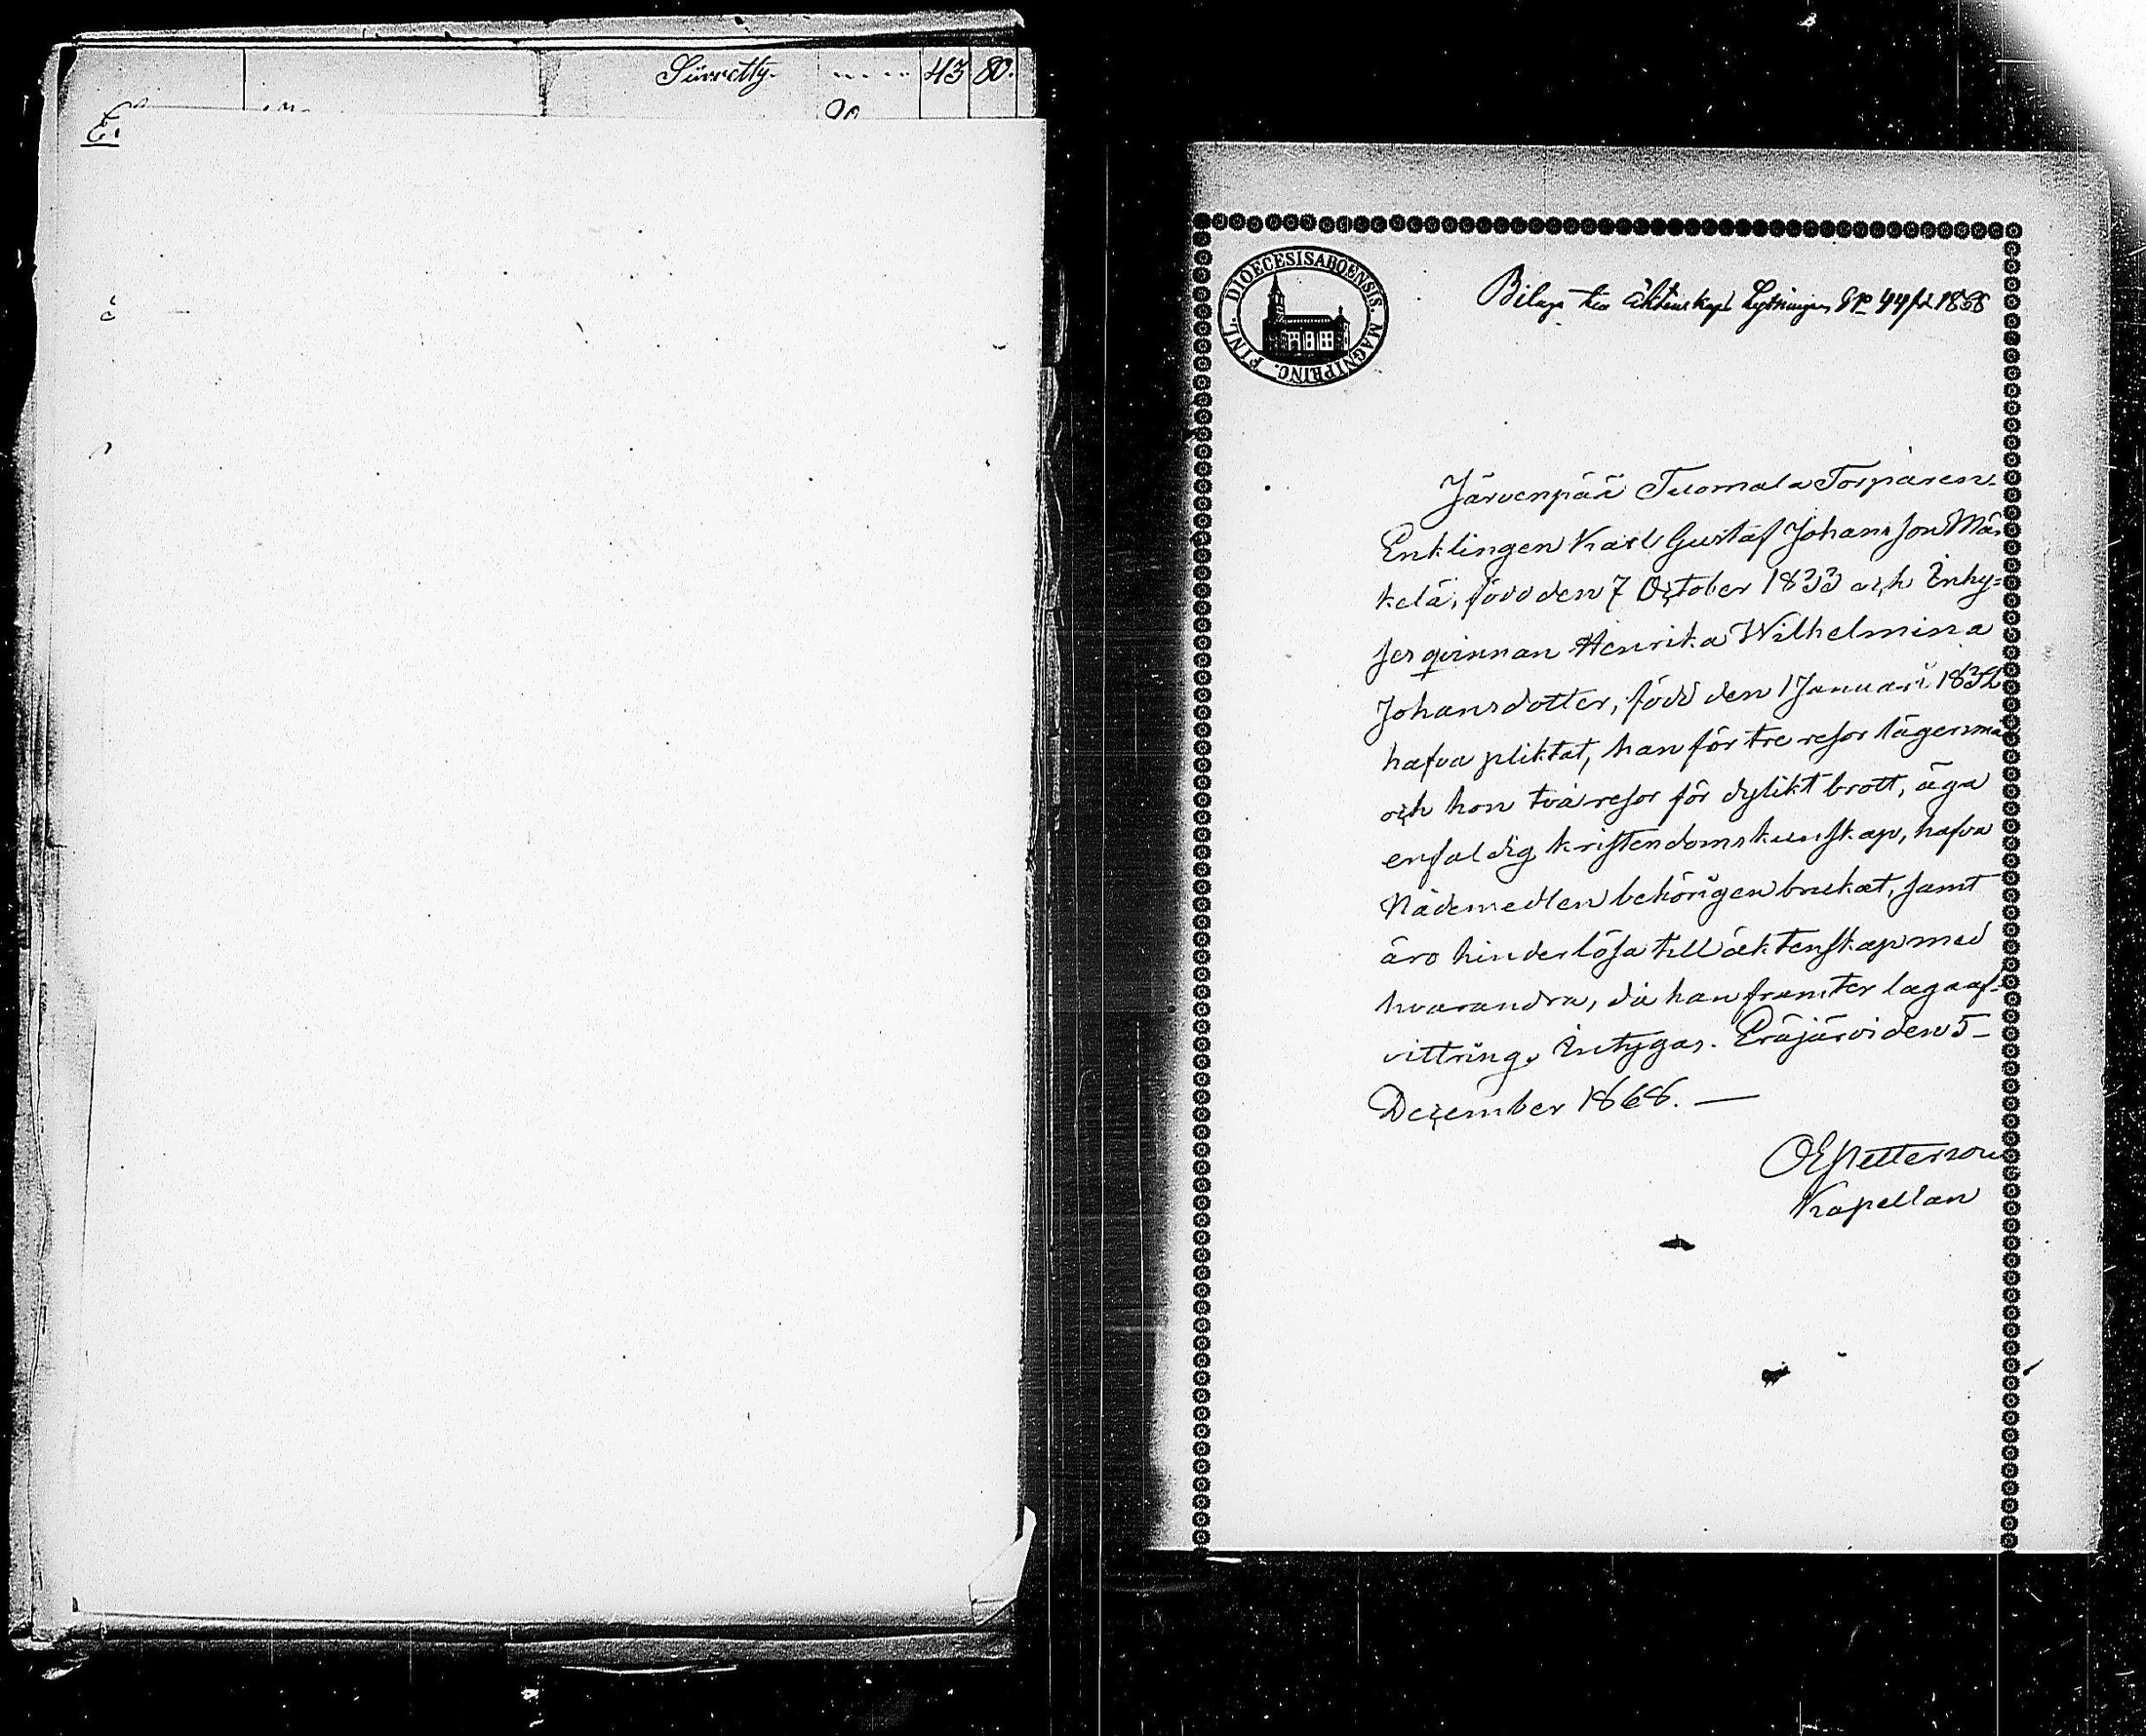 Siirretty. 43 80.
20
DIOECESIS ABOENSIS. MAGNI PRINC. FINL.
Bilaga till äktenskaps Lysningen No 44 1868
Järvenpää Tuomala Torparen
Enklingen Karl Gustaf Johansson Mär-
kelä, född den 7 October 1833 och Inhy=
ses qvinnan Henrika Wilhelmina
Johansdotter, född den 1 Januari 1832
hafva pliktat, han för tre resor lägersmål
och hon två resor för dylikt brott, äga
enfaldig kristendomskunskap, hafva
Nådemedlen behörigen brukat, samt
äro hinderlösa till äktenskap med
hvarandra, då han framter laga af-
vittring. Intygas. Eräjärvi den 5
December 1868. —
OE Petterson
Kapellan